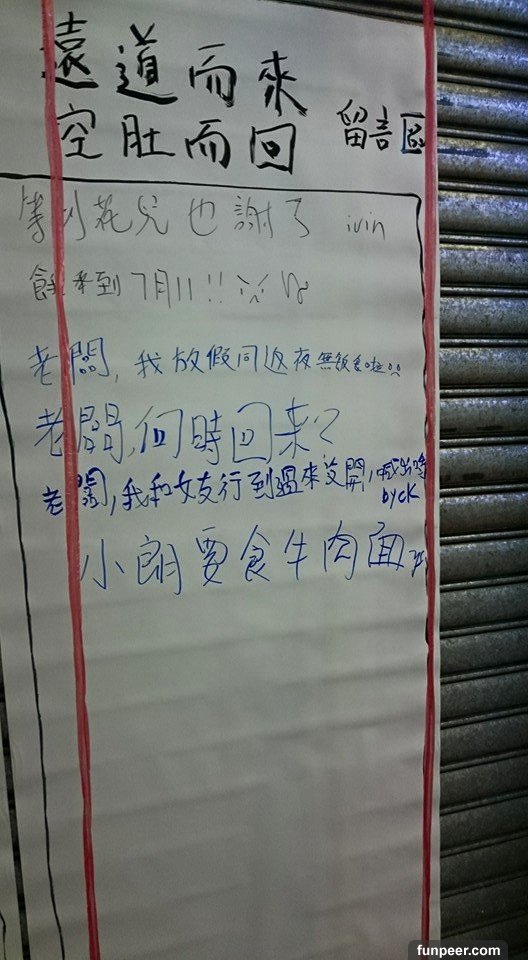 遠道而來
空肚而回 留言區
等到花兒也謝了 ivin
餓到7月11!!
老闆,我放假同返夜無飯食啦
老闆,何時回来?
老闆,我和女友行到過來没開,喊出嚟 by CK
小朗要食牛肉面
funpeer.com